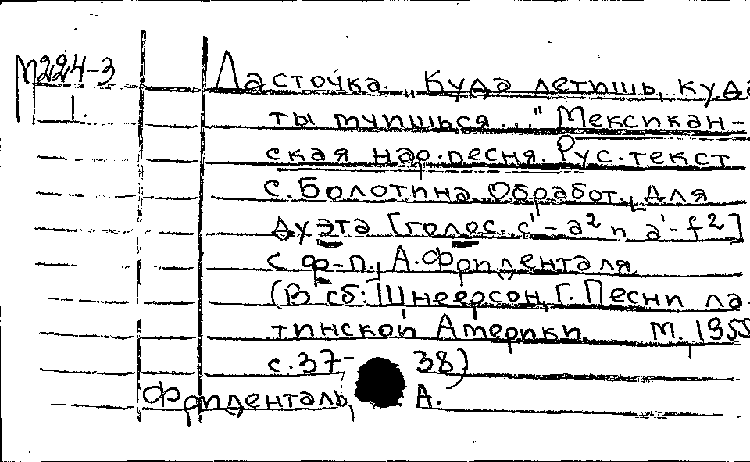 М224-3 Ласточка. „Куда летишь, куда
1. ты мчишься..." Мексикан-
ская нар.песня. Рус.текст
С.Болотина. Обработ. для
дуэта [голос. c¹-a² и a¹-f²]
с ф-п. А.Фриденталя
(В сб: Шнеерсон, Г. Песни ла-
тинской Америки. М. 1955
с.37-38)
Фриденталь, А.